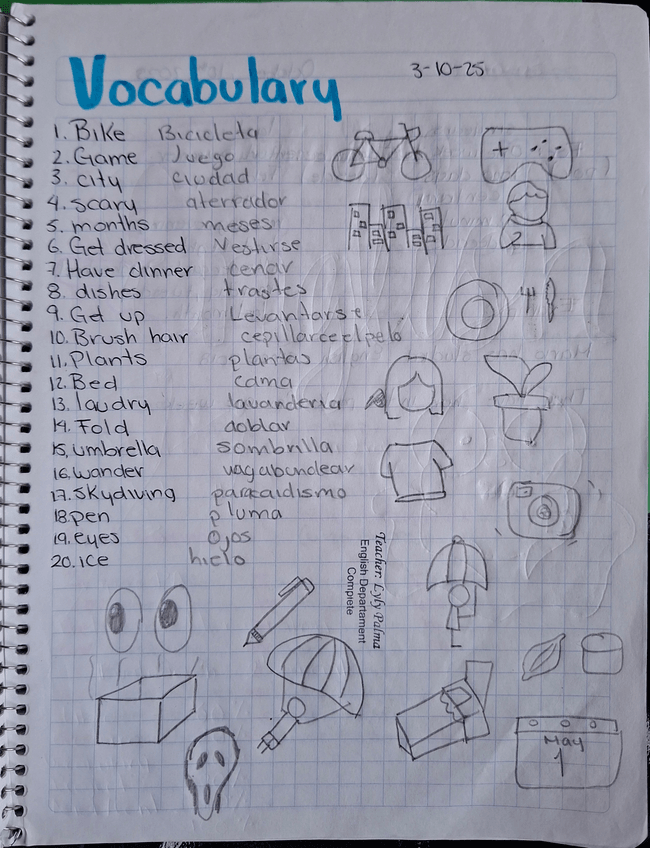 Vocabulary
3-10-25
1. Bike Bicicleta
2. Game Juego
3. city ciudad
4. scary aterrador
5. months meses
6. Get dressed Vestirse
7. Have dinner cenar
8. dishes trastes
9. Get up Levantarse
10. Brush hair cepillarceelpelo
11. Plants plantas
12. Bed cama
13. laudry lavanderia
14. Fold doblar
15. umbrella sombrilla
16. wander vagabundear
17. Skydiving paracaidismo
18. pen pluma
19. eyes Ojos
20. ice hielo
Teacher: Lyly Palma
English Departament
Complete
May
1